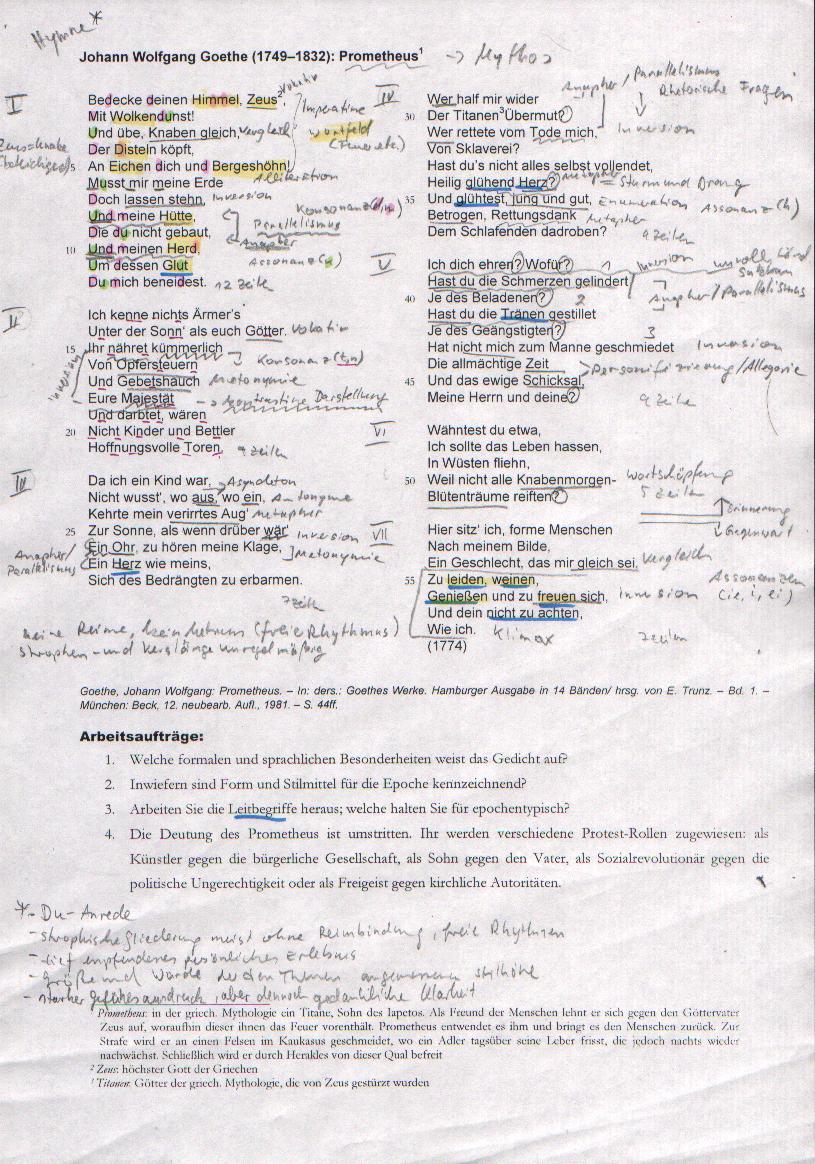 Hymne*
Johann Wolfgang Goethe (1749–1832): Prometheus¹ -> Mythos
I
Bedecke deinen Himmel, Zeus², Vokativ
Mit Wolkendunst! Imperative
Und übe, Knaben gleich, Vergleich Wortfeld
Zeus = Knabe
Der Disteln köpft,
5 An Eichen dich und Bergeshöhn!
Musst mir meine Erde Alliteration
Doch lassen stehn, Inversion Konsonanz
Und meine Hütte, Parallelismus
Die du nicht gebaut, Anapher
10 Und meinen Herd,
Um dessen Glut Assonanz (u)
Du mich beneidest. 12 Zeilen
II
Ich kenne nichts Ärmer's
Unter der Sonn' als euch Götter. Vokativ
15 Ihr nähret kümmerlich
Inversion
Von Opfersteuern Konsonanz (t,n)
Und Gebetshauch Metonymie
Eure Majestät -> kontrastive Darstellung
Und darbtet, wären
20 Nicht Kinder und Bettler
Hoffnungsvolle Toren. 9 Zeilen
III
Da ich ein Kind war, Asyndeton
Nicht wusst', wo aus, wo ein, Antonyme
Kehrte mein verirrtes Aug' Metapher
25 Zur Sonne, als wenn drüber wär' Inversion
Anapher/
Parallelismus
Ein Ohr, zu hören meine Klage, Metonymie
Ein Herz wie meins,
Sich des Bedrängten zu erbarmen.
7 Zeilen
keine Reime, kein Metrum (freie Rhythmus)
Strophen- und Verslänge unregelmäßig
IV
Anapher / Parallelismus
Rhetorische Fragen
Wer half mir wider
30 Der Titanen³ Übermut?
Wer rettete vom Tode mich, Inversion
Von Sklaverei?
Hast du's nicht alles selbst vollendet,
Heilig glühend Herz? Metapher = Sturm und Drang
35 Und glühtest, jung und gut, Enumeration Assonanz (h)
Betrogen, Rettungsdank Metapher
Dem Schlafenden dadroben? 9 Zeilen
V
Ich dich ehren? Wofür? 1 Inversion
Hast du die Schmerzen gelindert
Anapher/Parallelismus
40 Je des Beladenen? 2
Hast du die Tränen gestillet
Je des Geängstigten? 3
Hat nicht mich zum Manne geschmiedet Inversion
Die allmächtige Zeit > Personifizierung/Allegorie
45 Und das ewige Schicksal,
Meine Herrn und deine? 9 Zeilen
VI
Wähntest du etwa,
Ich sollte das Leben hassen,
In Wüsten fliehn,
50 Weil nicht alle Knabenmorgen- Wortschöpfung
Blütenträume reiften? 5 Zeilen
Erinnerung
Gegenwart
VII
Hier sitz' ich, forme Menschen
Nach meinem Bilde,
Ein Geschlecht, das mir gleich sei, Vergleich
55 Zu leiden, weinen, Assonanzen
Genießen und zu freuen sich, Inversion (ie, i, ei)
Und dein nicht zu achten,
Wie ich. Klimax 7 Zeilen
(1774)
Goethe, Johann Wolfgang: Prometheus. – In: ders.: Goethes Werke. Hamburger Ausgabe in 14 Bänden/ hrsg. von E. Trunz. – Bd. 1. –
München: Beck, 12. neubearb. Aufl., 1981. – S. 44ff.
Arbeitsaufträge:
1. Welche formalen und sprachlichen Besonderheiten weist das Gedicht auf?
2. Inwiefern sind Form und Stilmittel für die Epoche kennzeichnend?
3. Arbeiten Sie die Leitbegriffe heraus; welche halten Sie für epochentypisch?
4. Die Deutung des Prometheus ist umstritten. Ihr werden verschiedene Protest-Rollen zugewiesen: als
Künstler gegen die bürgerliche Gesellschaft, als Sohn gegen den Vater, als Sozialrevolutionär gegen die
politische Ungerechtigkeit oder als Freigeist gegen kirchliche Autoritäten.
*- Du-Anrede
- strophische Gliederung meist ohne Reimbindung, freie Rhythmen
- tief empfundenes persönliches Erlebnis
- Größe und Würde der den Themen angemessen Stilhöhe
- starker Gefühlsausdruck, aber dennoch gedankliche Klarheit
Prometheus: in der griech. Mythologie ein Titane, Sohn des Iapetos. Als Freund der Menschen lehnt er sich gegen den Göttervater
Zeus auf, woraufhin dieser ihnen das Feuer vorenthält. Prometheus entwendet es ihm und bringt es den Menschen zurück. Zur
Strafe wird er an einen Felsen im Kaukasus geschmeidet, wo ein Adler tagsüber seine Leber frisst, die jedoch nachts wieder
nachwächst. Schließlich wird er durch Herakles von dieser Qual befreit
² Zeus: höchster Gott der Griechen
³ Titanen: Götter der griech. Mythologie, die von Zeus gestürzt wurden